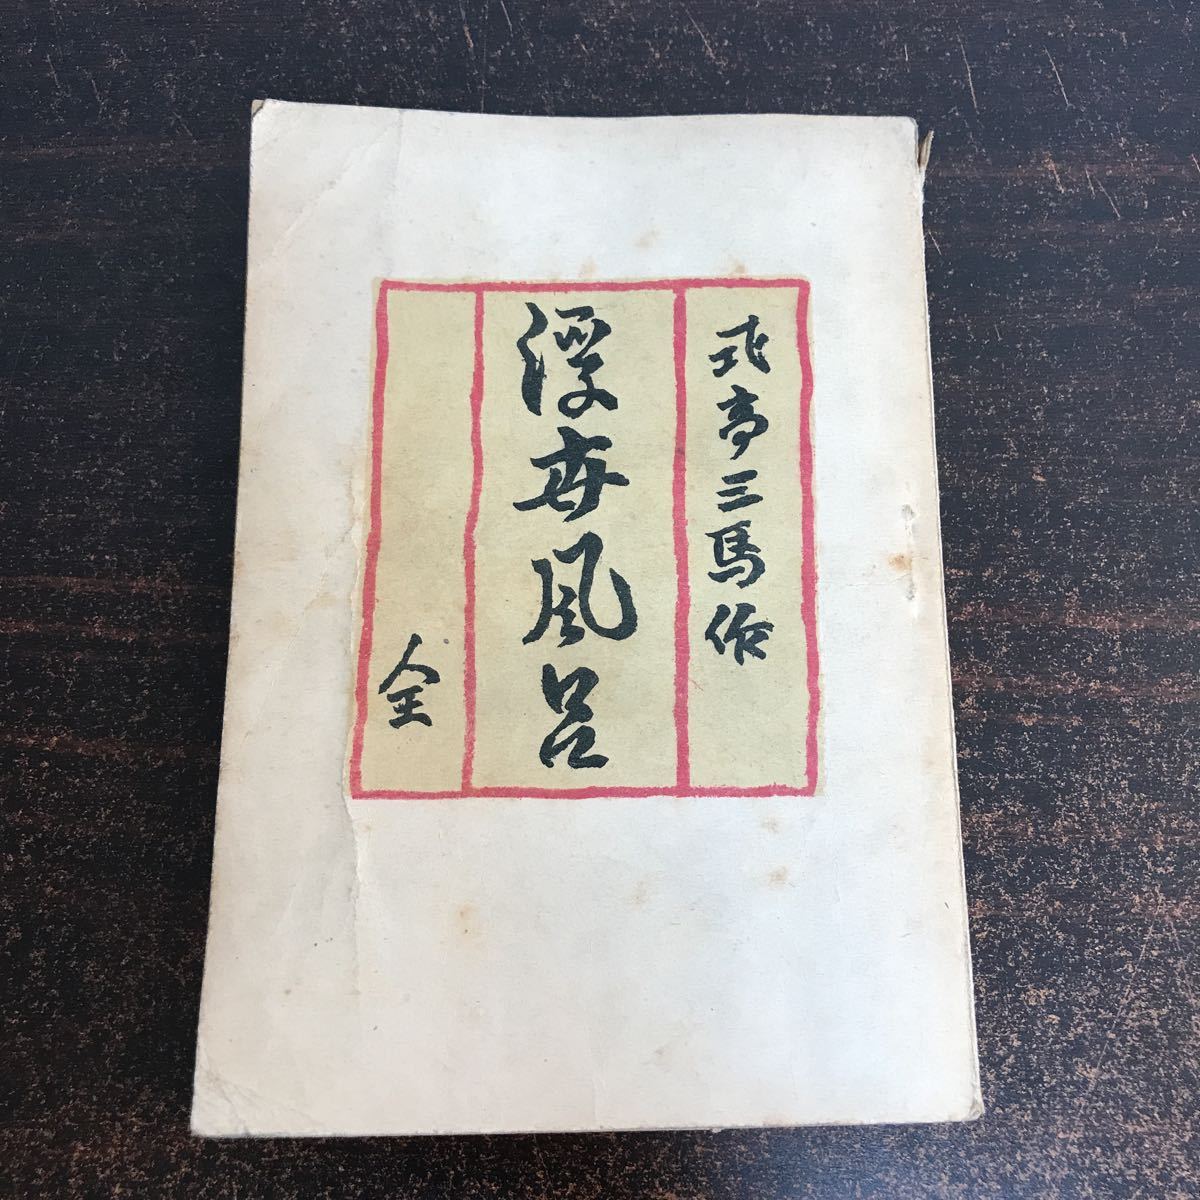 式亭三馬作
浮世風呂
全